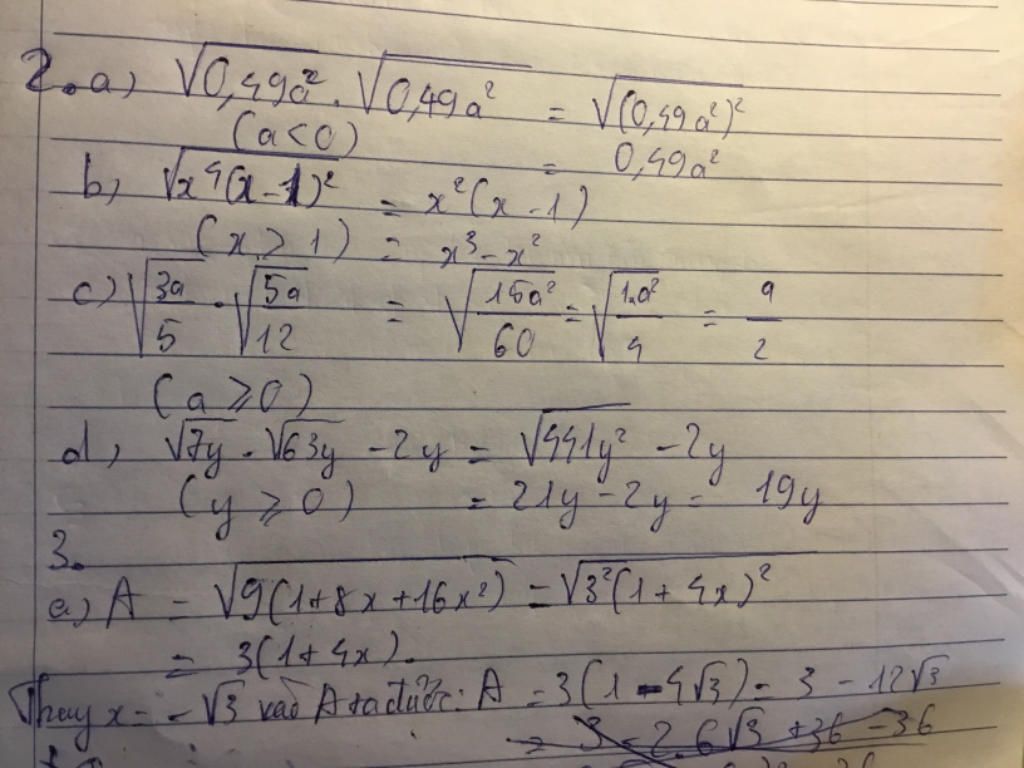 2. a) √0,49a² . √0,49a² = √(0,49a²)²
(a < 0) = 0,49a²
b) √x⁴(x - 1)² = x²(x - 1)
(x ≥ 1) = x³ - x²
c) √3a/5 . √5a/12 = √15a²/60 = √1.a²/4 = a/2
(a ≥ 0)
d) √7y . √63y - 2y = √441y² - 2y
(y ≥ 0) = 21y - 2y = 19y
3.
a) A = √9(1 + 8x + 16x²) = √3²(1 + 4x)²
= 3(1 + 4x).
Thay x = -√3 vào A ta được: A = 3(1 - 4√3) = 3 - 12√3
= 3 - 2.6√3 + 36 - 36